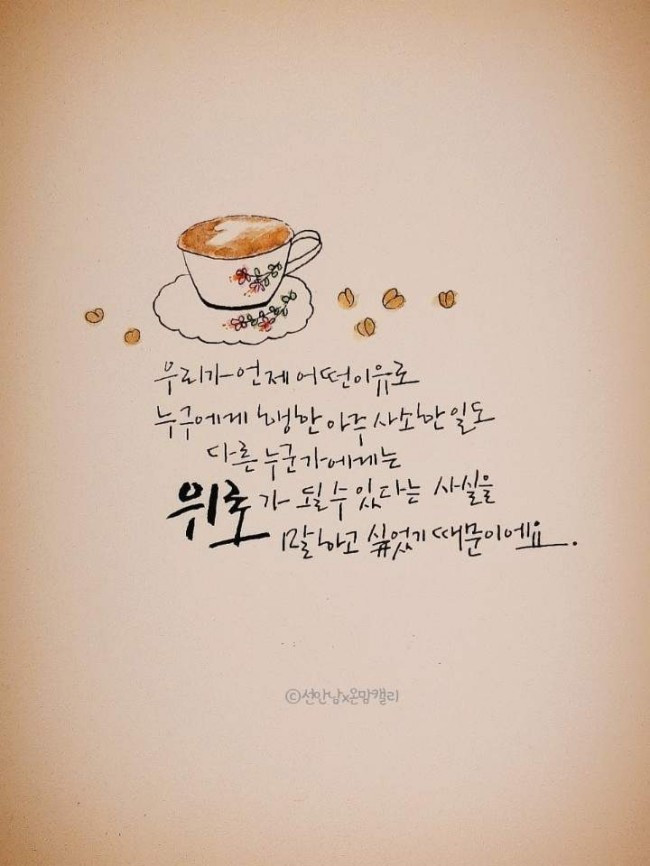 우리가 언제 어떤 이유로
누구에게 행한 아주 사소한 일도
다른 누군가에게는
위로가 될 수 있다는 사실을
말하고 싶었기 때문이에요.
©선안남x온맘캘리